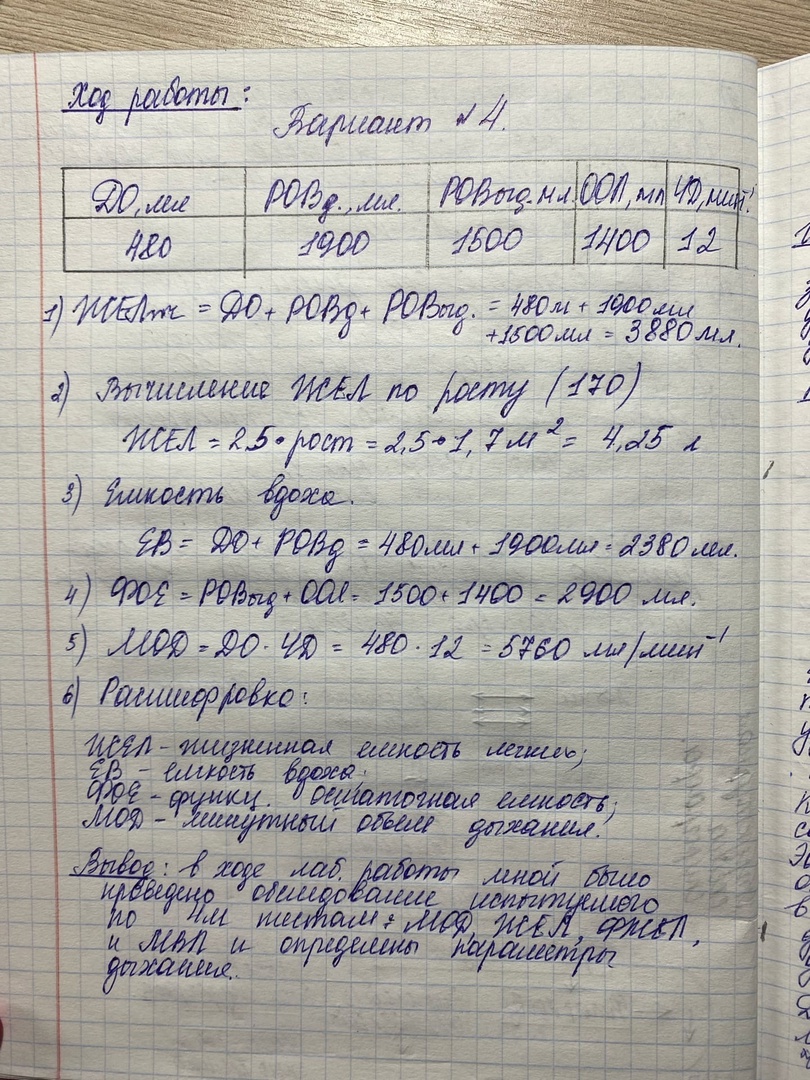 Ход работы:
Вариант №4.
ДО, мл РОВд., мл. РОВыд. мл. ООЛ, мл ЧД, мин⁻¹
480 1900 1500 1400 12
1) ЖЕЛ = ДО + РОВд + РОВыд. = 480м + 1900мл
+1500мл = 3880мл.
2) Вычисление ЖЕЛ по росту (170)
ЖЕЛ = 2,5 • рост = 2,5 • 1,7м² = 4,25 л
3) Емкость вдоха.
ЕВ = ДО + РОВд = 480мл + 1900мл = 2380мл.
4) ФОЕ = РОВыд + ООЛ = 1500 + 1400 = 2900 мл.
5) МОД = ДО · ЧД = 480 · 12 = 5760 мл/мин⁻¹
6) Расшифровка:
ЖЕЛ - жизненная емкость легких;
ЕВ - емкость вдоха;
ФОЕ - функц. остаточная емкость;
МОД - минутный объем дыхания.
Вывод: в ходе лаб. работы мной было
проведено обследование испытуемого
по 4м тестам: МОД, ЖЕЛ, ФЖЕЛ,
и МВЛ и определены параметры
дыхания.